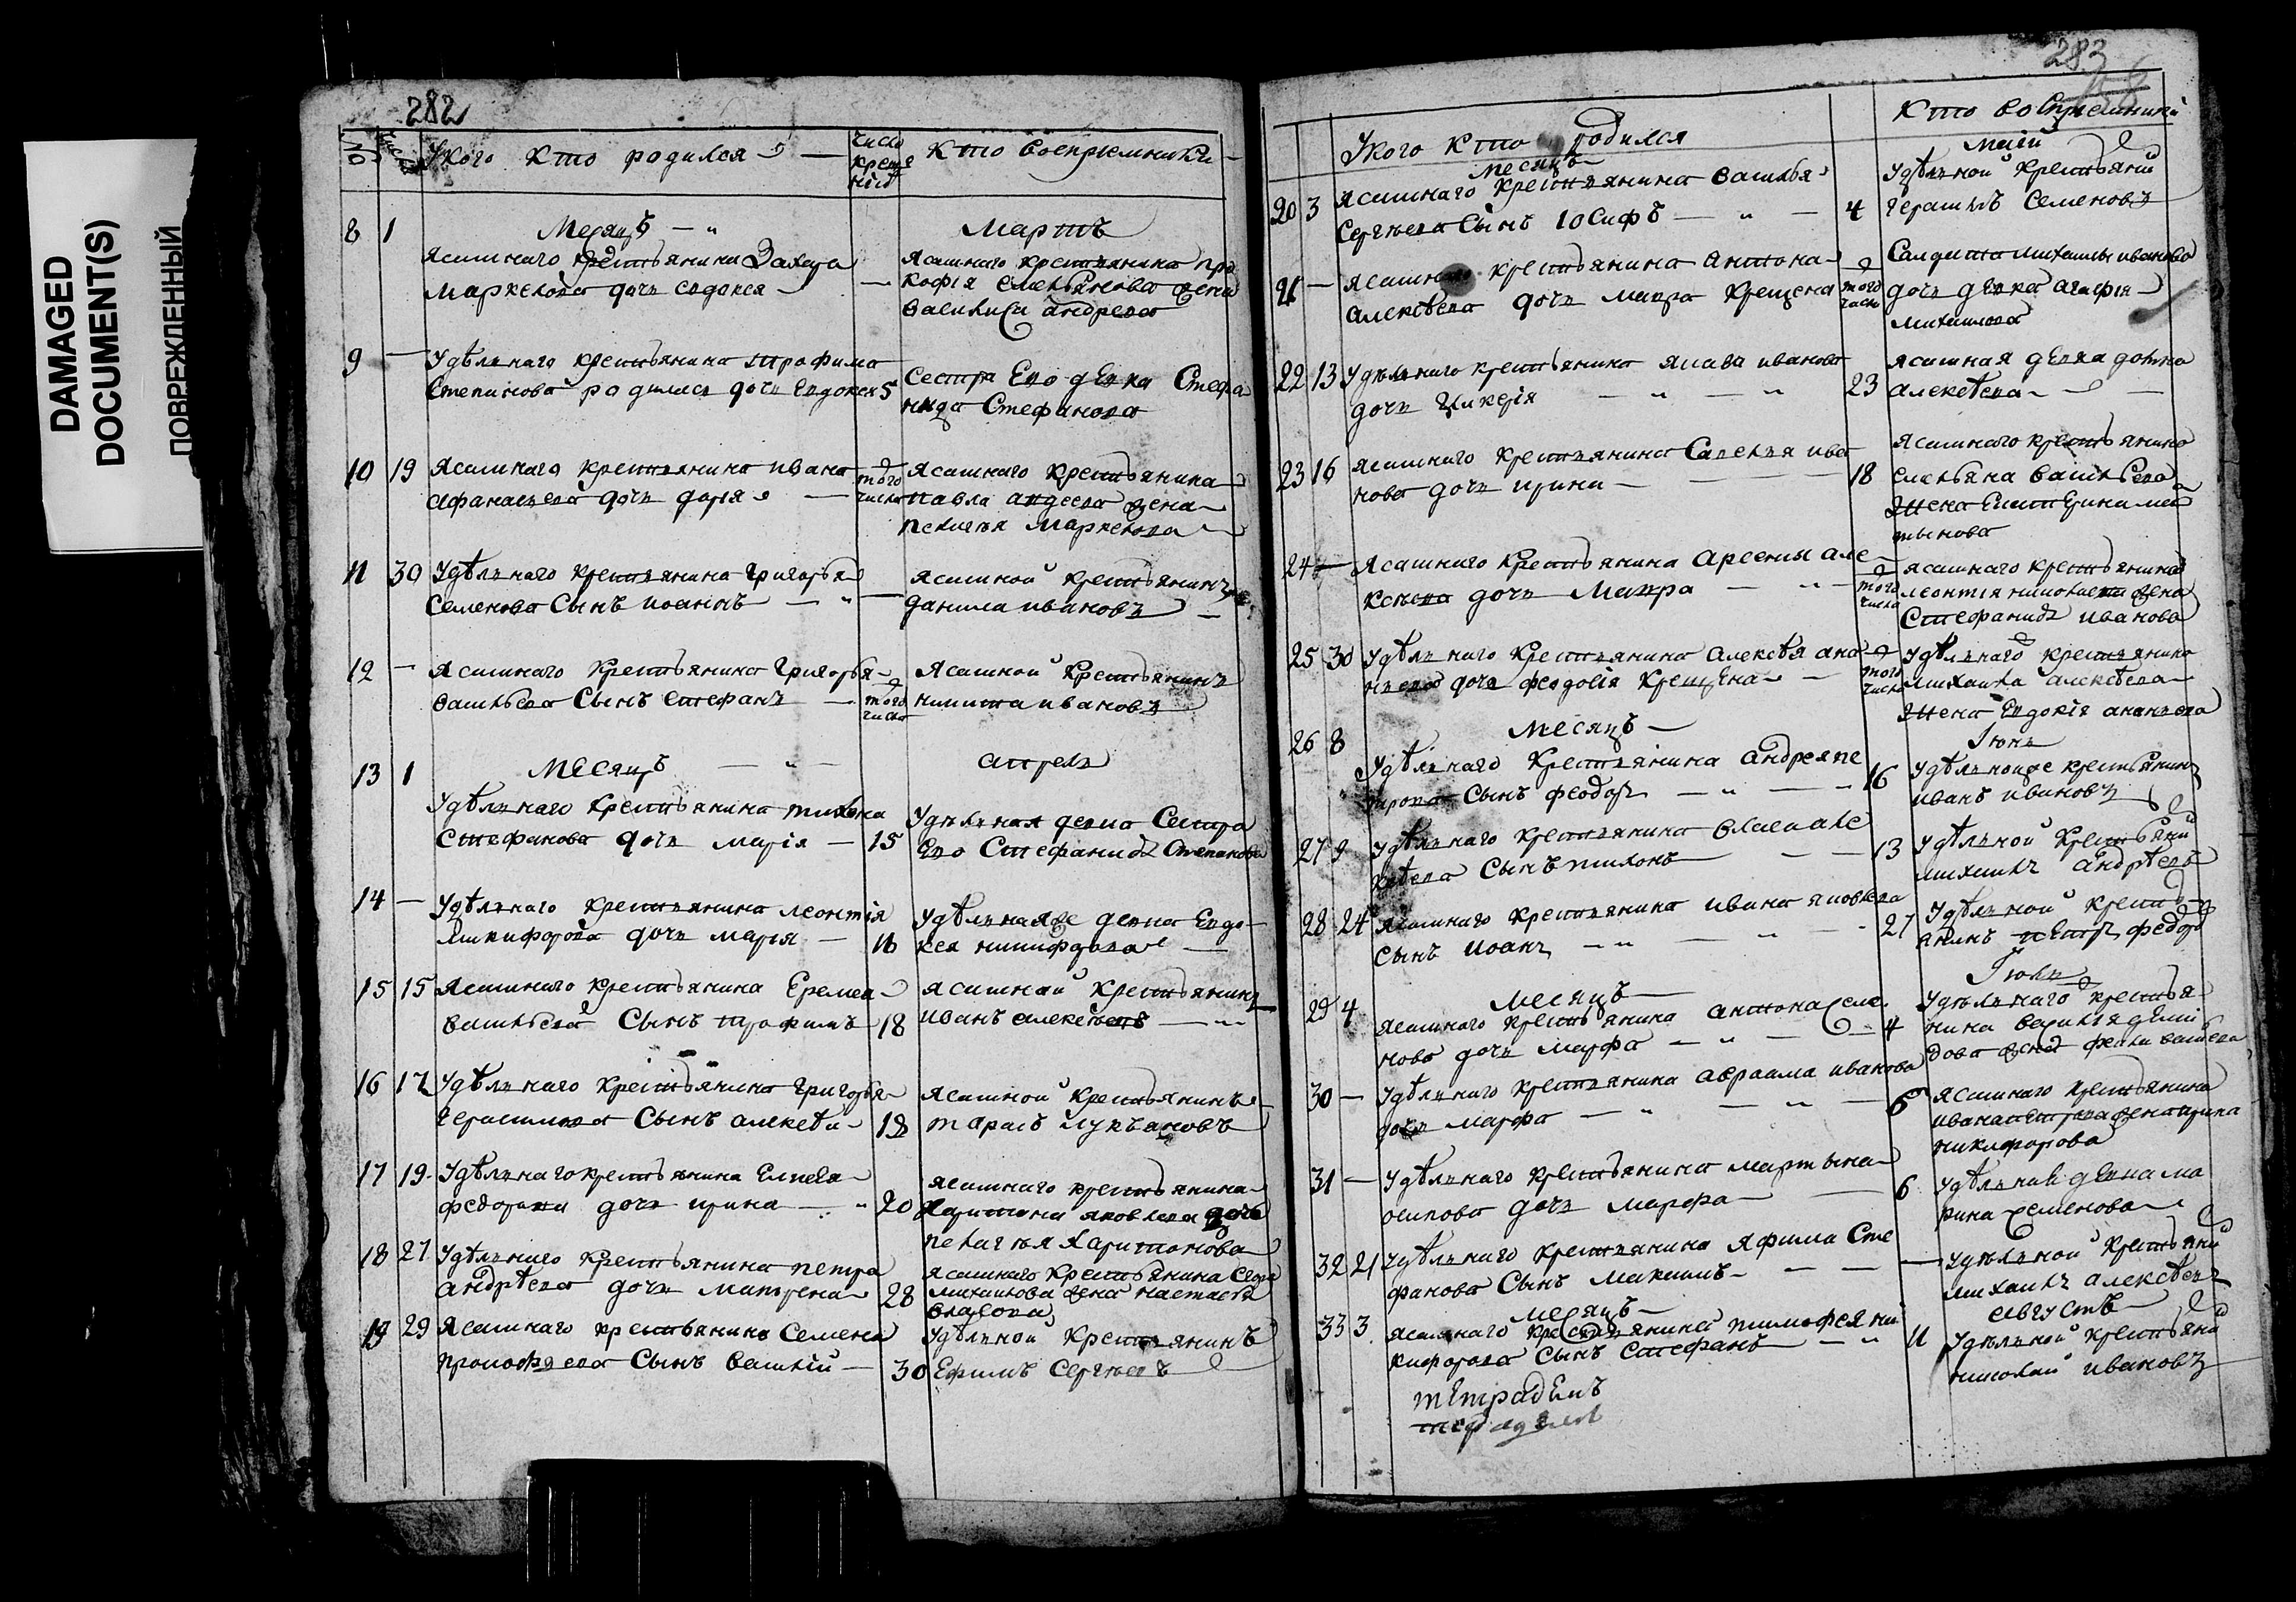 DAMAGED
DOCUMENT(S)
ПОВРЕЖДЕННЫЙ
282
№ Число Укого кто родился — число креще нія Кто воспрiемники —
Месяцъ — Мартъ
8 1 Ясашнаго крестьянина Захара
Маркелова дочь евдокея —
Ясашнаго крестьянина про
кофія емельянова жена
василиса андреева
9 — Удѣльнаго крестьянина трофима
Степанова родилась дочь Евдокея 5
Сестра Ево девка Стефа
нида Стефанова
10 19 Ясашнаго крестьянина ивана
афанасьева дочь дарія — того числа
Ясашнаго крестьянина
павла авдеева жена
пелагея маркелова
11 30 Удѣльнаго крестьянина григорья
Семенова Сынъ иоаннъ — " —
Ясашной крестьянинъ
данила ивановъ —
12 — Ясашнаго крестьянина григорья
васильева Сынъ стефанъ — того числа
Ясашной Крестьянинъ
никита ивановъ
13 1 Месяцъ — " — апрель
Удѣльнаго крестьянина тихона
Стефанова дочь марія — 15
Удѣльная девка Сестра
Ево Стефанида Степанова
14 — Удѣльнаго крестьянина леонтія
никифорова дочь марія — 16
Удѣльная же девка Евдо-
кея никифорова —
15 15 Ясашнаго крестьянина Еремея
васильева Сынъ трофимъ 18
Ясашнай крестьянинъ
иванъ алексѣевъ —
16 17 Удѣльнаго крестьянина григорья
герасимова Сынъ алексѣй 18
Ясашной крестьянинъ
тарасъ лукьяновъ
17 19 Удѣльнаго крестьянина Елисея
федорова дочь ирина — " 20
Ясашнаго крестьянина
Харитона яковлева дочь
пелагея Харитонова
18 27 Удѣльнаго крестьянина петра
андрѣева дочь матрена 28
Ясашнаго Крестьянина
михаилова жена настасья
власова
19 29 Ясашнаго крестьянина Семена
прокофьева Сынъ василій — 30
Удѣльной Крестьянинъ
Ефимъ Сергѣевъ
283
Укого кто родился Кто воспрiемники
месяцъ маій
20 3 Ясашнаго крестьянина василья
Сергѣева Сынъ Iосифъ — " — 4
Удѣльной крестьянинъ
герасимъ Семеновъ
21 — Ясашнаго крестьянина антона
алексѣева дочь мавра крещена того числа
Салдата михаилы иванова
дочь девка агафія
михаилова
22 13 Удѣльнаго крестьянина иванова
дочь гликерія — " — " 23
Ясашная девка
алексѣева —
23 16 Ясашнаго крестьянина Савелья ива
нова дочь ирина — 18
Ясашнаго крестьянина
емельяна васильева
жена Екатерина мар
тынова
24 — Ясашнаго Крестьянина Арсенія але
ксѣева дочь мавра — " — того числа
Ясашнаго крестьянина
леонтія николаева жена
Стефанида иванова
25 30 Удѣльнаго крестьянина алексѣя ана
ньева дочь феодосія крещена — того числа
Удѣльнаго крестьянина
михаила алексѣева
жена Евдокія ананьева
месяцъ — Iюнь
26 8 Удѣльнаго Крестьянина андрея пе
трова Сынъ феодоръ — " — 16
Удѣльной же крестьянинъ
иванъ ивановъ
27 9 Удѣльнаго крестьянина власа але
ксѣева Сынъ тихонъ — 13
Удѣльной Крестьянинъ
михаилъ андрѣевъ
28 24 Ясашнаго крестьянина ивана яковлева
Сынъ иоанъ — " — " — 27
Удѣльной кресть
янинъ петръ федоро
месяцъ — Iюль
29 4 Ясашнаго крестьянина антона Семе
нова дочь марфа — " — 4
Удѣльнаго крестья
нина василія деми
дова жена
30 — Удѣльнаго крестьянина авраама иванова
дочь марфа — " — " — 6
Ясашнаго крестьянина
ивана петрова жена ирина
никифорова
31 — Удѣльнаго крестьянина мартына
осипова дочь марфа — 6
Удѣльная девка ма
рина Семенова
32 21 Удѣльнаго крестьянина Яфима Сте
фанова Сынъ Максимъ — —
Удѣльной Крестьянинъ
михаилъ алексѣевъ
месяцъ — августъ
33 3 Ясашнаго крестьянина тимофея ни
кифорова Сынъ Стефанъ — " 11
Удѣльной крестьянинъ
николай ивановъ